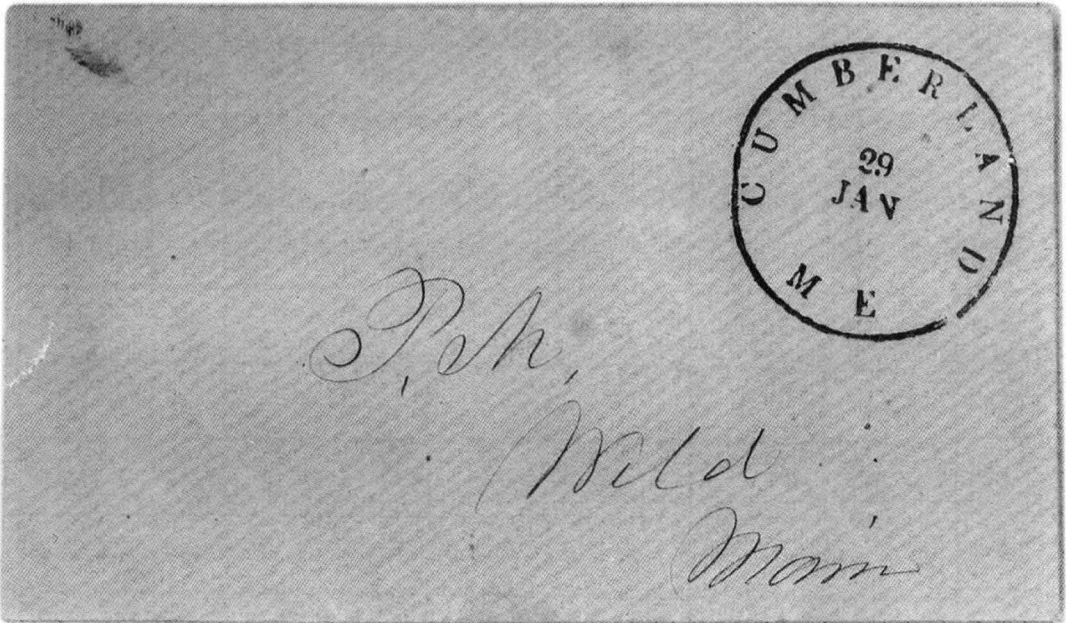 CUMBERLAND
29
JAN
ME
P. M,
Weld
Main